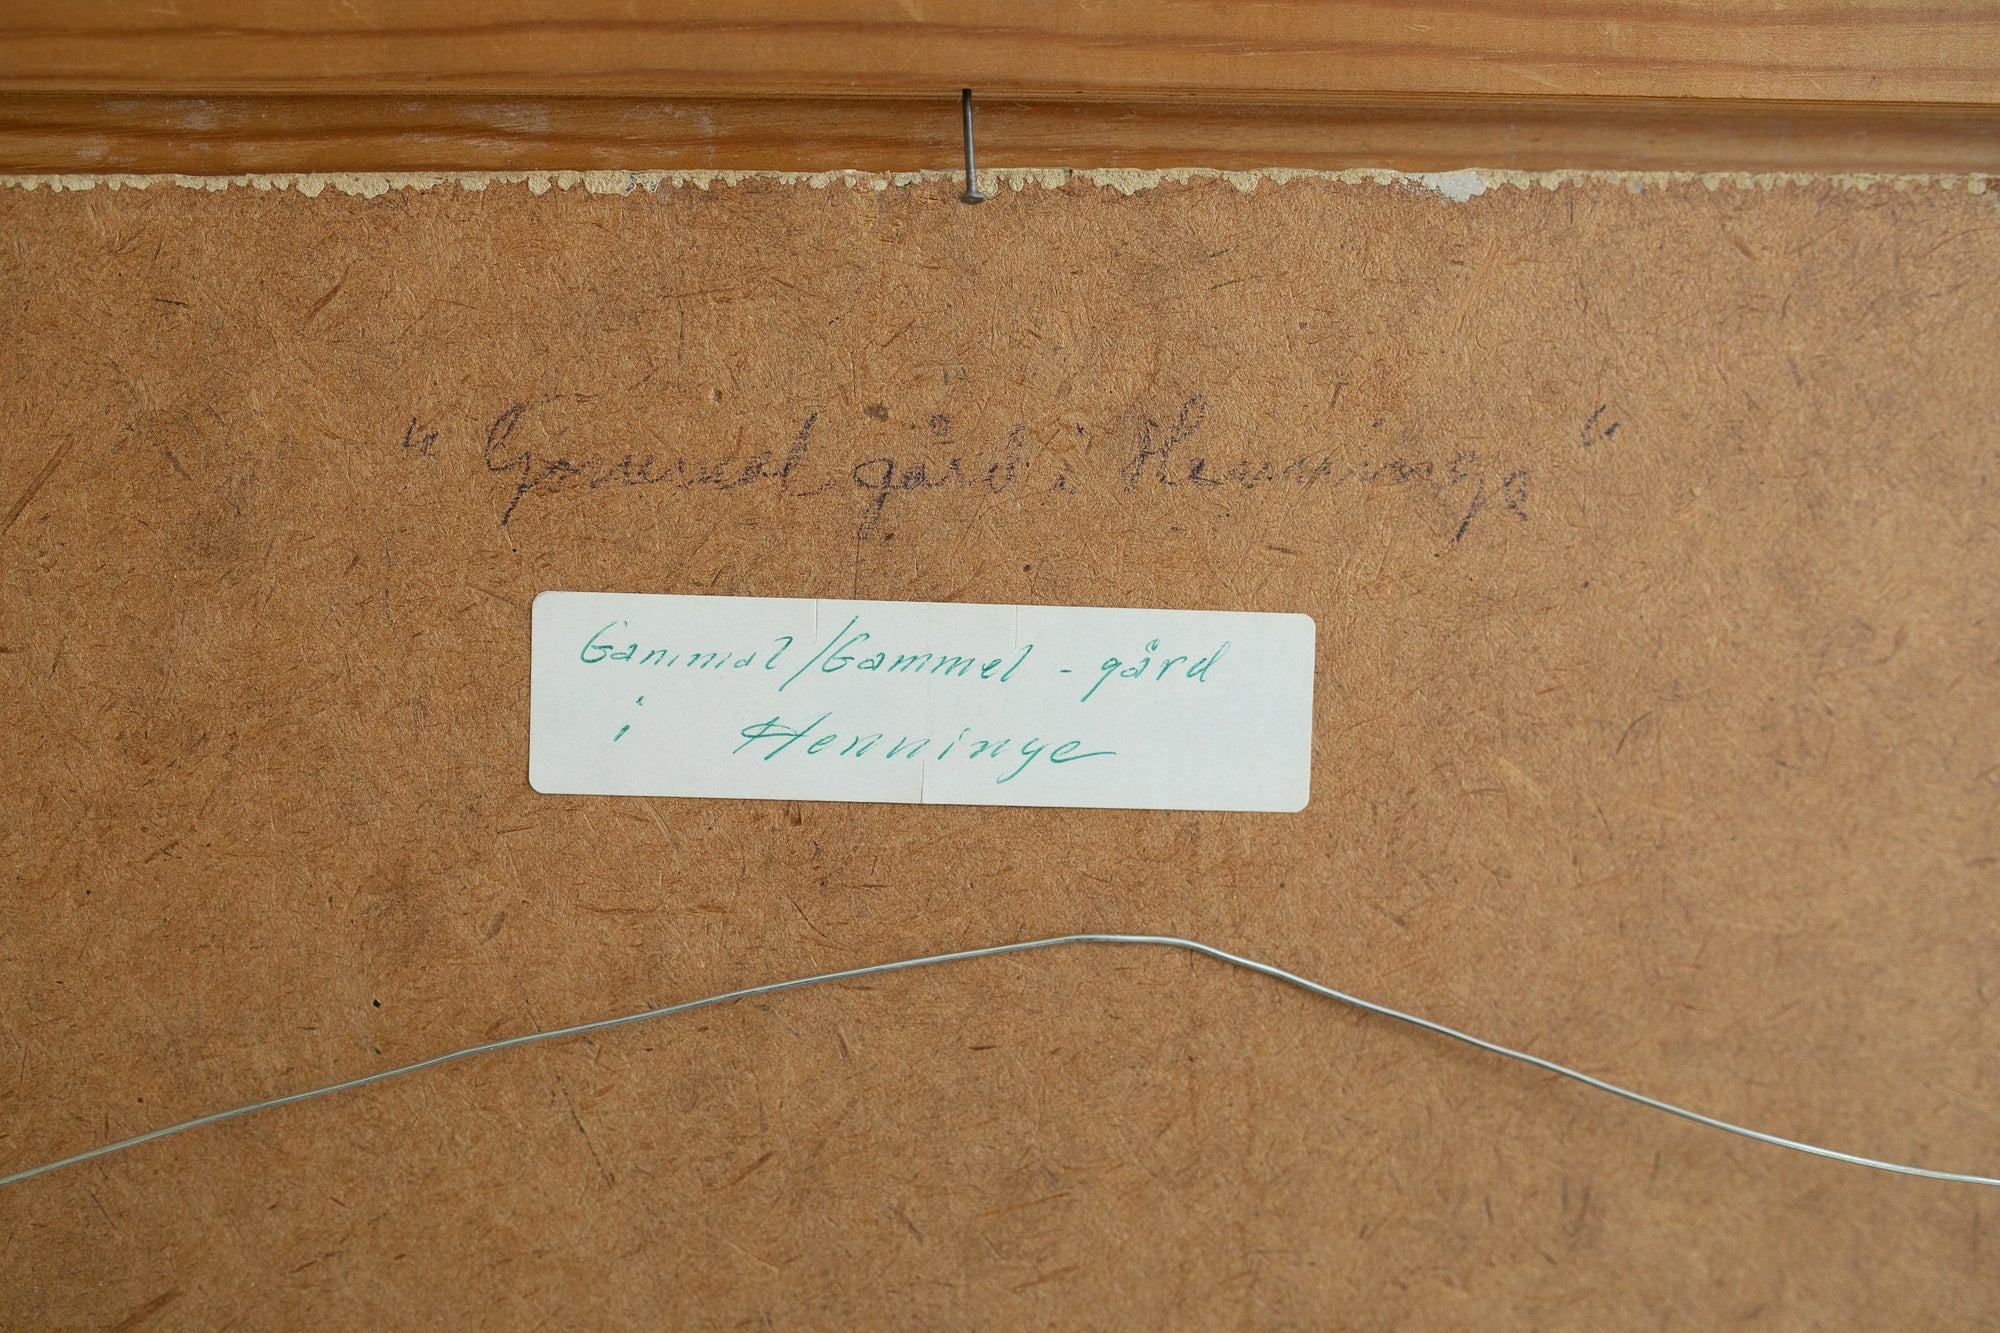 "Gammal gård i Henninge"
Gammal/Gammel - gård
i Henninge